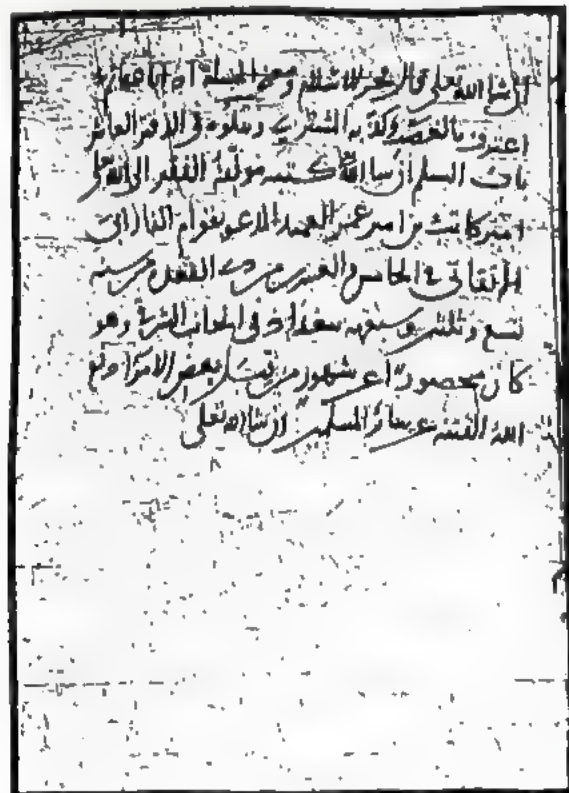 ان شا الله تعالى والا نحر للاسلام وهذه المسلة اذا
اعترف بالغصب وكذبه المشتري ويتلوه في الدفتر العاشر
باب السلم ان شا الله كتبه مولفه الفقير الى الله تعالى
امير كاتب بن امير عمر العميد المدعو بقوام الفارابي
الاتقاني في الخامس والعشرين من ذي القعدة من سنة
تسع وثلثين وسبعمائة ببغداد في الجانب الشرقي وهو
كان محصورا شهور من قبل بعض الامرا دفع
الله الفتنة عن سائر المسلمين ان شا الله تعالى